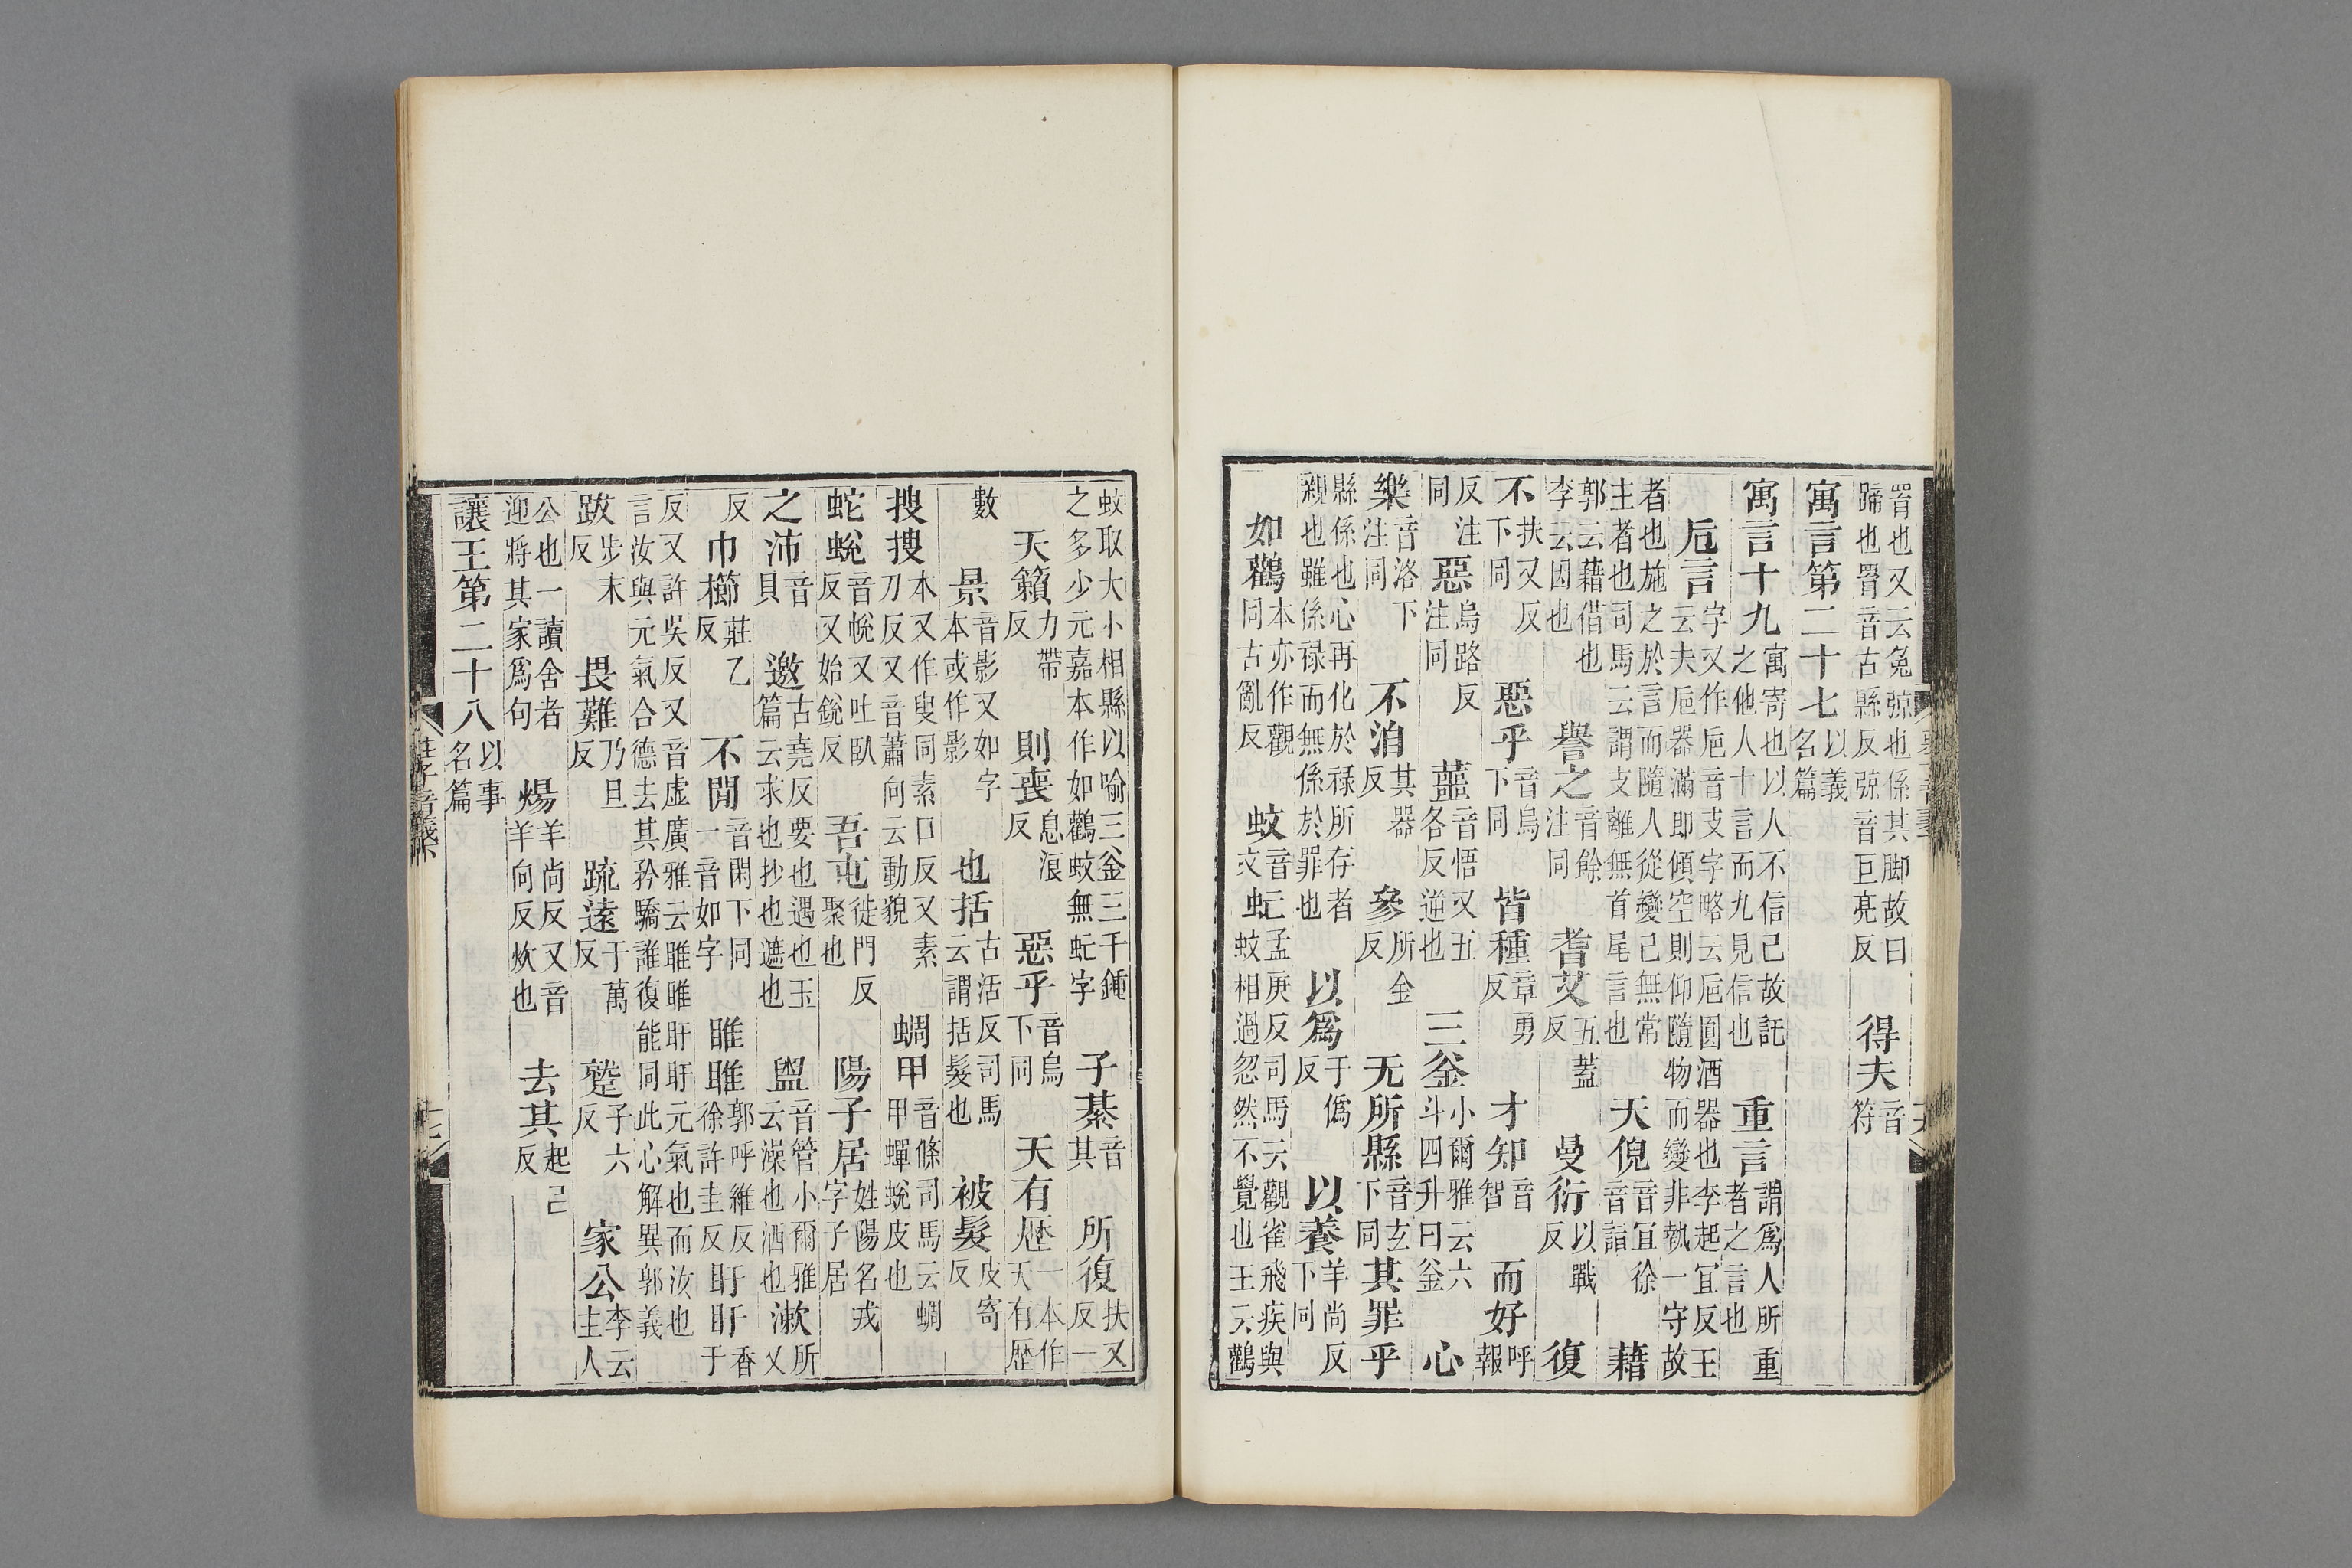 罥也又云兔弶也係其脚故曰蹄也罥音古縣反弶音巨亮反 得夫音符
寓言第二十七以義名篇
寓言十九寓寄也以人不信己故託之他人十言而九見信也 重言謂爲人所重者之言也
巵言字又作巵音支字略云巵圓酒器也李起宜反王云夫巵器滿即傾空則仰隨物而變非執一守故
者也施之於言而隨人從變己無常主者也司馬云謂支離無首尾言也 天倪音宜徐音詣 藉
郭云藉借也李云因也 譽之音餘注同 耆艾五蓋反 曼衍以戰反 復
不扶又反下同 惡乎音烏下同 皆種章勇反 才知音智 而好呼報
反注同 惡烏路反注同 蘁音悟又五各反逆也 三釜小爾雅云六斗四升曰釜 心
樂音洛下注同 不洎其器反 參所金反 无所縣音玄下同 其罪乎
縣係也心再化於禄所存者親也雖係禄而無係於罪也 以爲于僞反 以養羊尚反下同
如鸛本亦作觀同古亂反 蚊音文 虻孟庚反司馬云觀雀飛疾與蚊相過忽然不覺也王云鸛
蚊取大小相縣以喻三釜三千鍾之多少元嘉本作如鸛蚊無虻字 子綦音其 所復扶又反一
天籟力帶反 則喪息浪反 惡乎音烏下同 天有歷一本作天有歷
數 景音影又如字本或作影 也括古活反司馬云謂括髮也 被髮皮寄反
搜搜本又作叟同素口反又素刀反又音蕭向云動貌 蜩甲音條司馬云蜩甲蟬蛻皮也
蛇蛻音帨又吐臥反又始銳反 吾屯徒門反聚也 陽子居姓陽名戎字子居
之沛音貝 邀古堯反要也遇也玉篇云求也抄也遮也 盥音管小爾雅云澡也洒也 漱所又
反 巾櫛莊乙反 不閒音閑下同一音如字 睢睢郭呼維反徐許圭反 盱盱香于
反又許吳反又音虛廣雅云睢睢盱盱元氣也而汝也言汝與元氣合德去其矜驕誰復能同此心解異郭義
跋步末反 畏難乃旦反 疏遠于萬反 蹵子六反 家公李云主人
公也一讀舍者迎將其家爲句 煬羊尚反又音羊向反炊也 去其起己反
讓王第二十八以事名篇
莊子音義下 十七